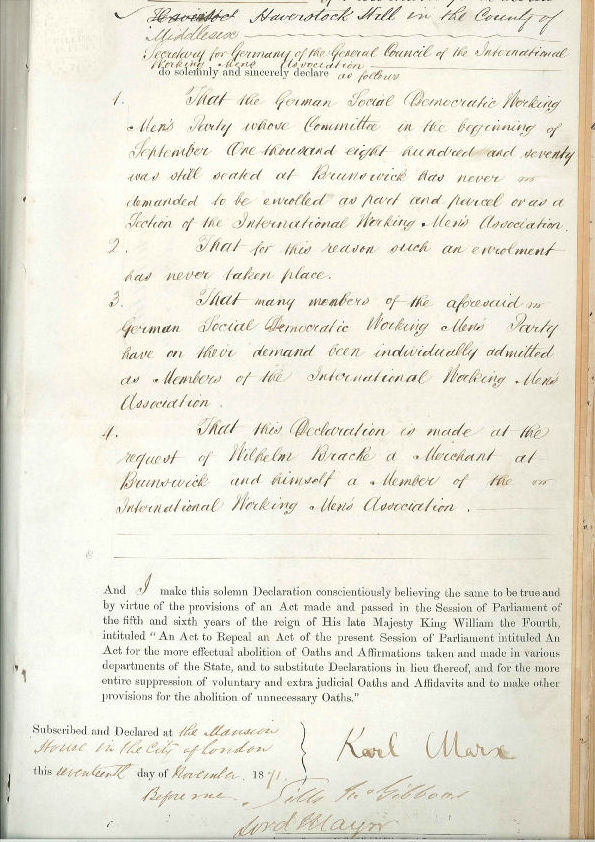 Haverstock Haverstock Hill in the County of
Middlesex
Secretary for Germany of the General Council of the International
Working Mens Association
do solemnly and sincerely declare as follows
1. That the German Social Democratic Working
Men's Party whose Committee in the beginning of
September One thousand eight hundred and seventy
was still seated at Brunswick has never
demanded to be enrolled as part and parcel or as a
Section of the International Working Men's Association.
2. That for this reason such an enrolment
has never taken place.
3. That many members of the aforesaid
German Social Democratic Working Men's Party
have on their demand been individually admitted
as Members of the International Working Men's
Association.
4. That this Declaration is made at the
request of Wilhelm Bracke a Merchant at
Brunswick and himself a Member of the
International Working Men's Association.
And I make this solemn Declaration conscientiously believing the same to be true and
by virtue of the provisions of an Act made and passed in the Session of Parliament of
the fifth and sixth years of the reign of His late Majesty King William the Fourth,
intituled "An Act to Repeal an Act of the present Session of Parliament intituled An
Act for the more effectual abolition of Oaths and Affirmations taken and made in various
departments of the State, and to substitute Declarations in lieu thereof, and for the more
entire suppression of voluntary and extra judicial Oaths and Affidavits and to make other
provisions for the abolition of unnecessary Oaths."
Subscribed and Declared at the Mansion
House in the City of London
this seventeenth day of November 1871.
Karl Marx
Before me Sills Jno Gibbons
Lord Mayor